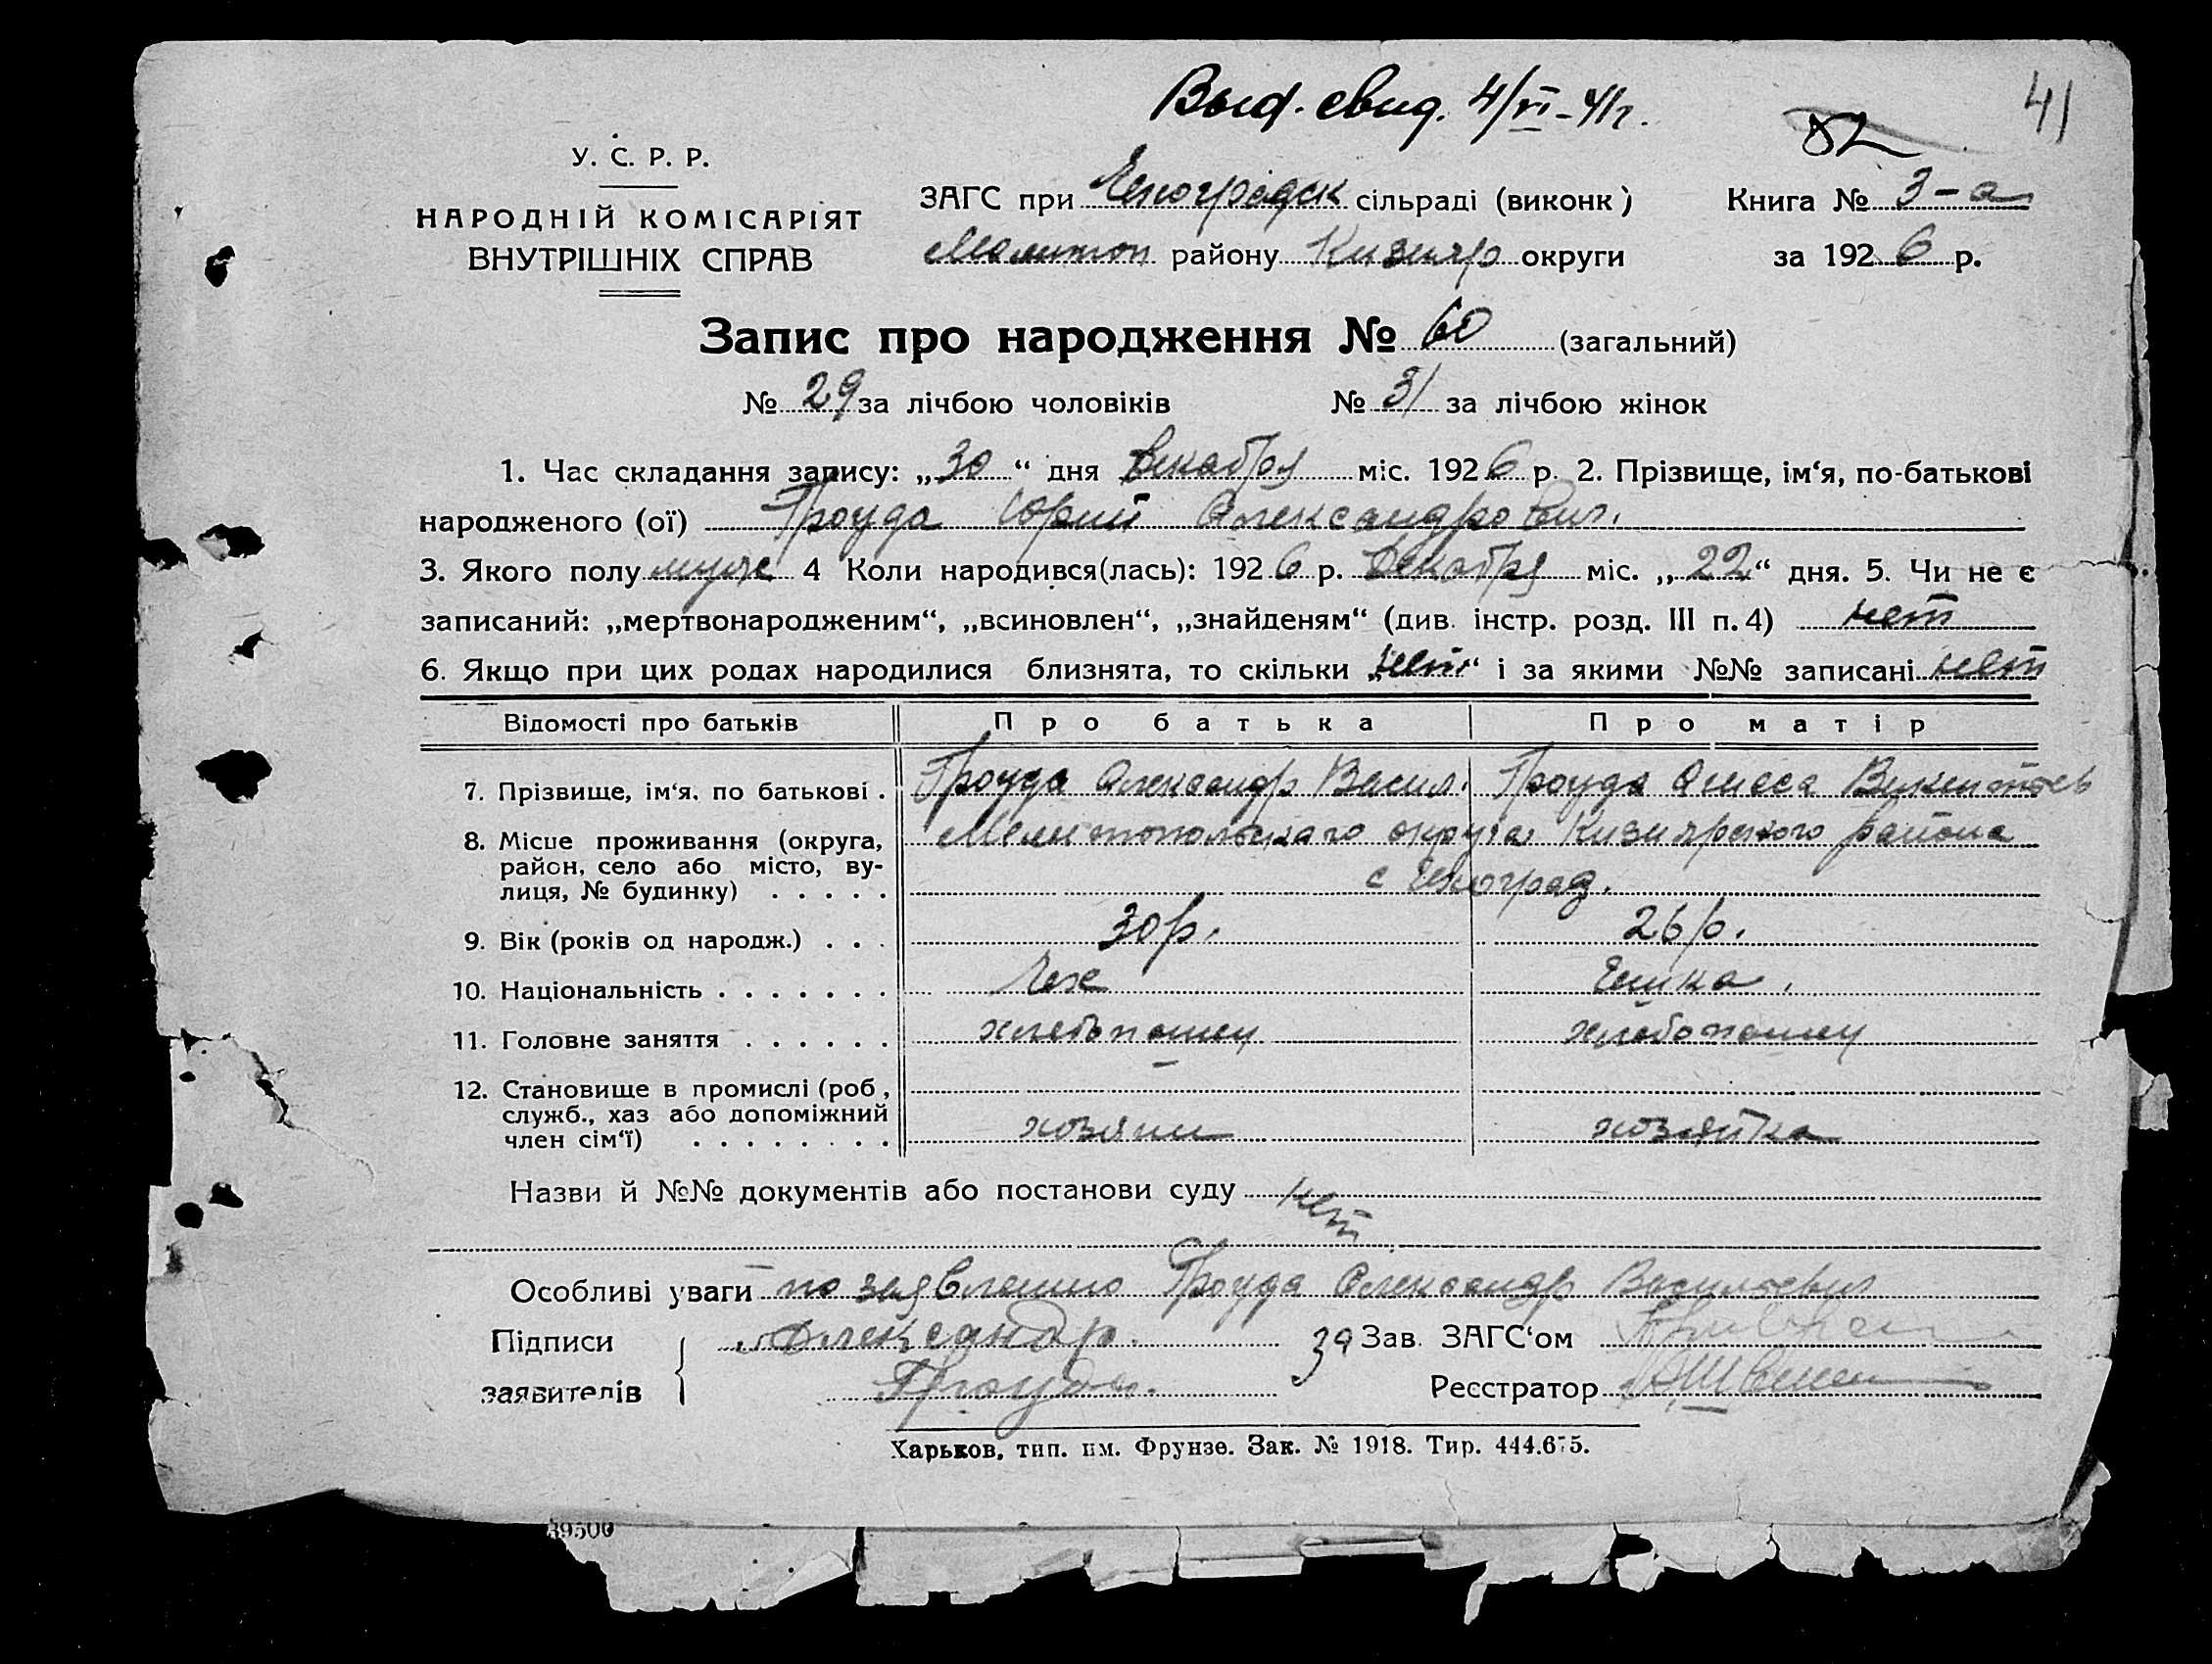 Выд. свид. 4/VI-41г.
41
82
У. С. Р. Р.
НАРОДНІЙ КОМІСАРІЯТ
ВНУТРІШНІХ СПРАВ
ЗАГС при Чехоградск сільраді (виконк)
Мелитоп району Кизияр округи
Книга № 3-а
за 1926 р.
Запис про народження № 60 (загальний)
№ 29 за лічбою чоловіків № 31 за лічбою жінок
1. Час складання запису: „30“ дня Декабря міс. 1926 р. 2. Прізвище, ім‘я, по-батькові
народженого (ої) Проуда Юрий Александрович.
3. Якого полу муж 4 Коли народився(лась): 1926 р. Декабря міс. „22“ дня. 5. Чи не є
записаний: „мертвонародженим“, „всиновлен“, „знайденям“ (див. інстр. розд. III п. 4) нет
6. Якщо при цих родах народилися близнята, то скільки „нет“ і за якими №№ записані нет
Відомості про батьків Про батька Про матір
7. Прізвище, ім‘я, по батькові . Проуда Александр Васил. Проуда Викентьев
8. Місце проживання (округа, район, село або місто, вулиця, № будинку) . . . . . Мелитопольскаго округа Кизиярского района
с Чехоград.
9. Вік (років од народж.) . . . 30 р. 26 р.
10. Національність . . . . . . . Чех Чешка.
11. Головне заняття . . . . . . хлебопашец хлебопашец
12. Становище в промислі (роб, служб., хаз або допоміжний член сім‘ї) . . . . . . . . хозяин хозяйка
Назви й №№ документів або постанови суду нет
Особливі уваги по заявлению Проуда Александр Васильевич
Підписи заявителів Александр.
Проуда.
За Зав. ЗАГС‘ом
Реєстратор
Харьков, тип. им. Фрунзе. Зак. № 1918. Тир. 444.675.
39500